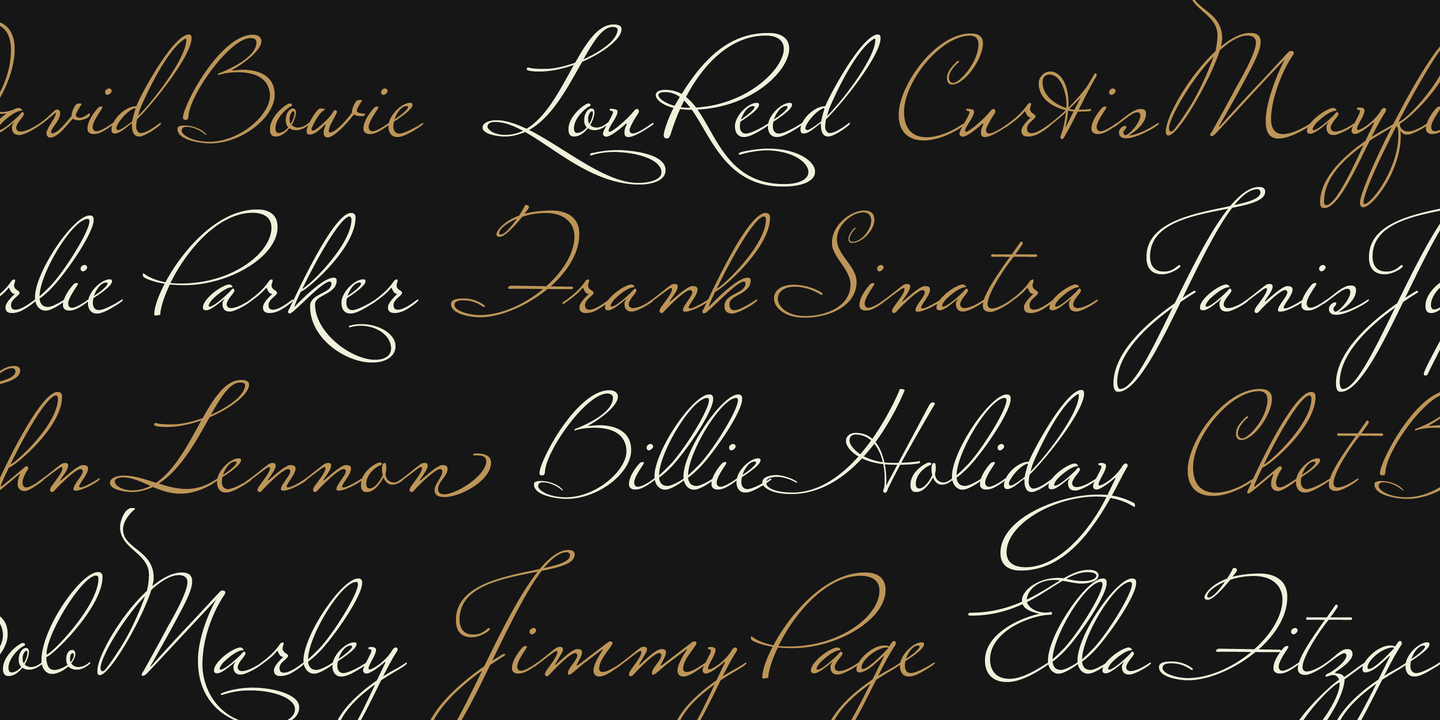 David Bowie Lou Reed Curtis Mayfi
rlie Parker Frank Sinatra Janis Jo
hn Lennon Billie Holiday Chet B
Bob Marley Jimmy Page Ella Fitzge